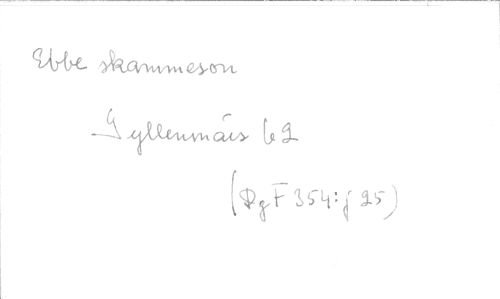 Ebbe skammeson
Gyllenmärs 62
(DgF 354: f 25)